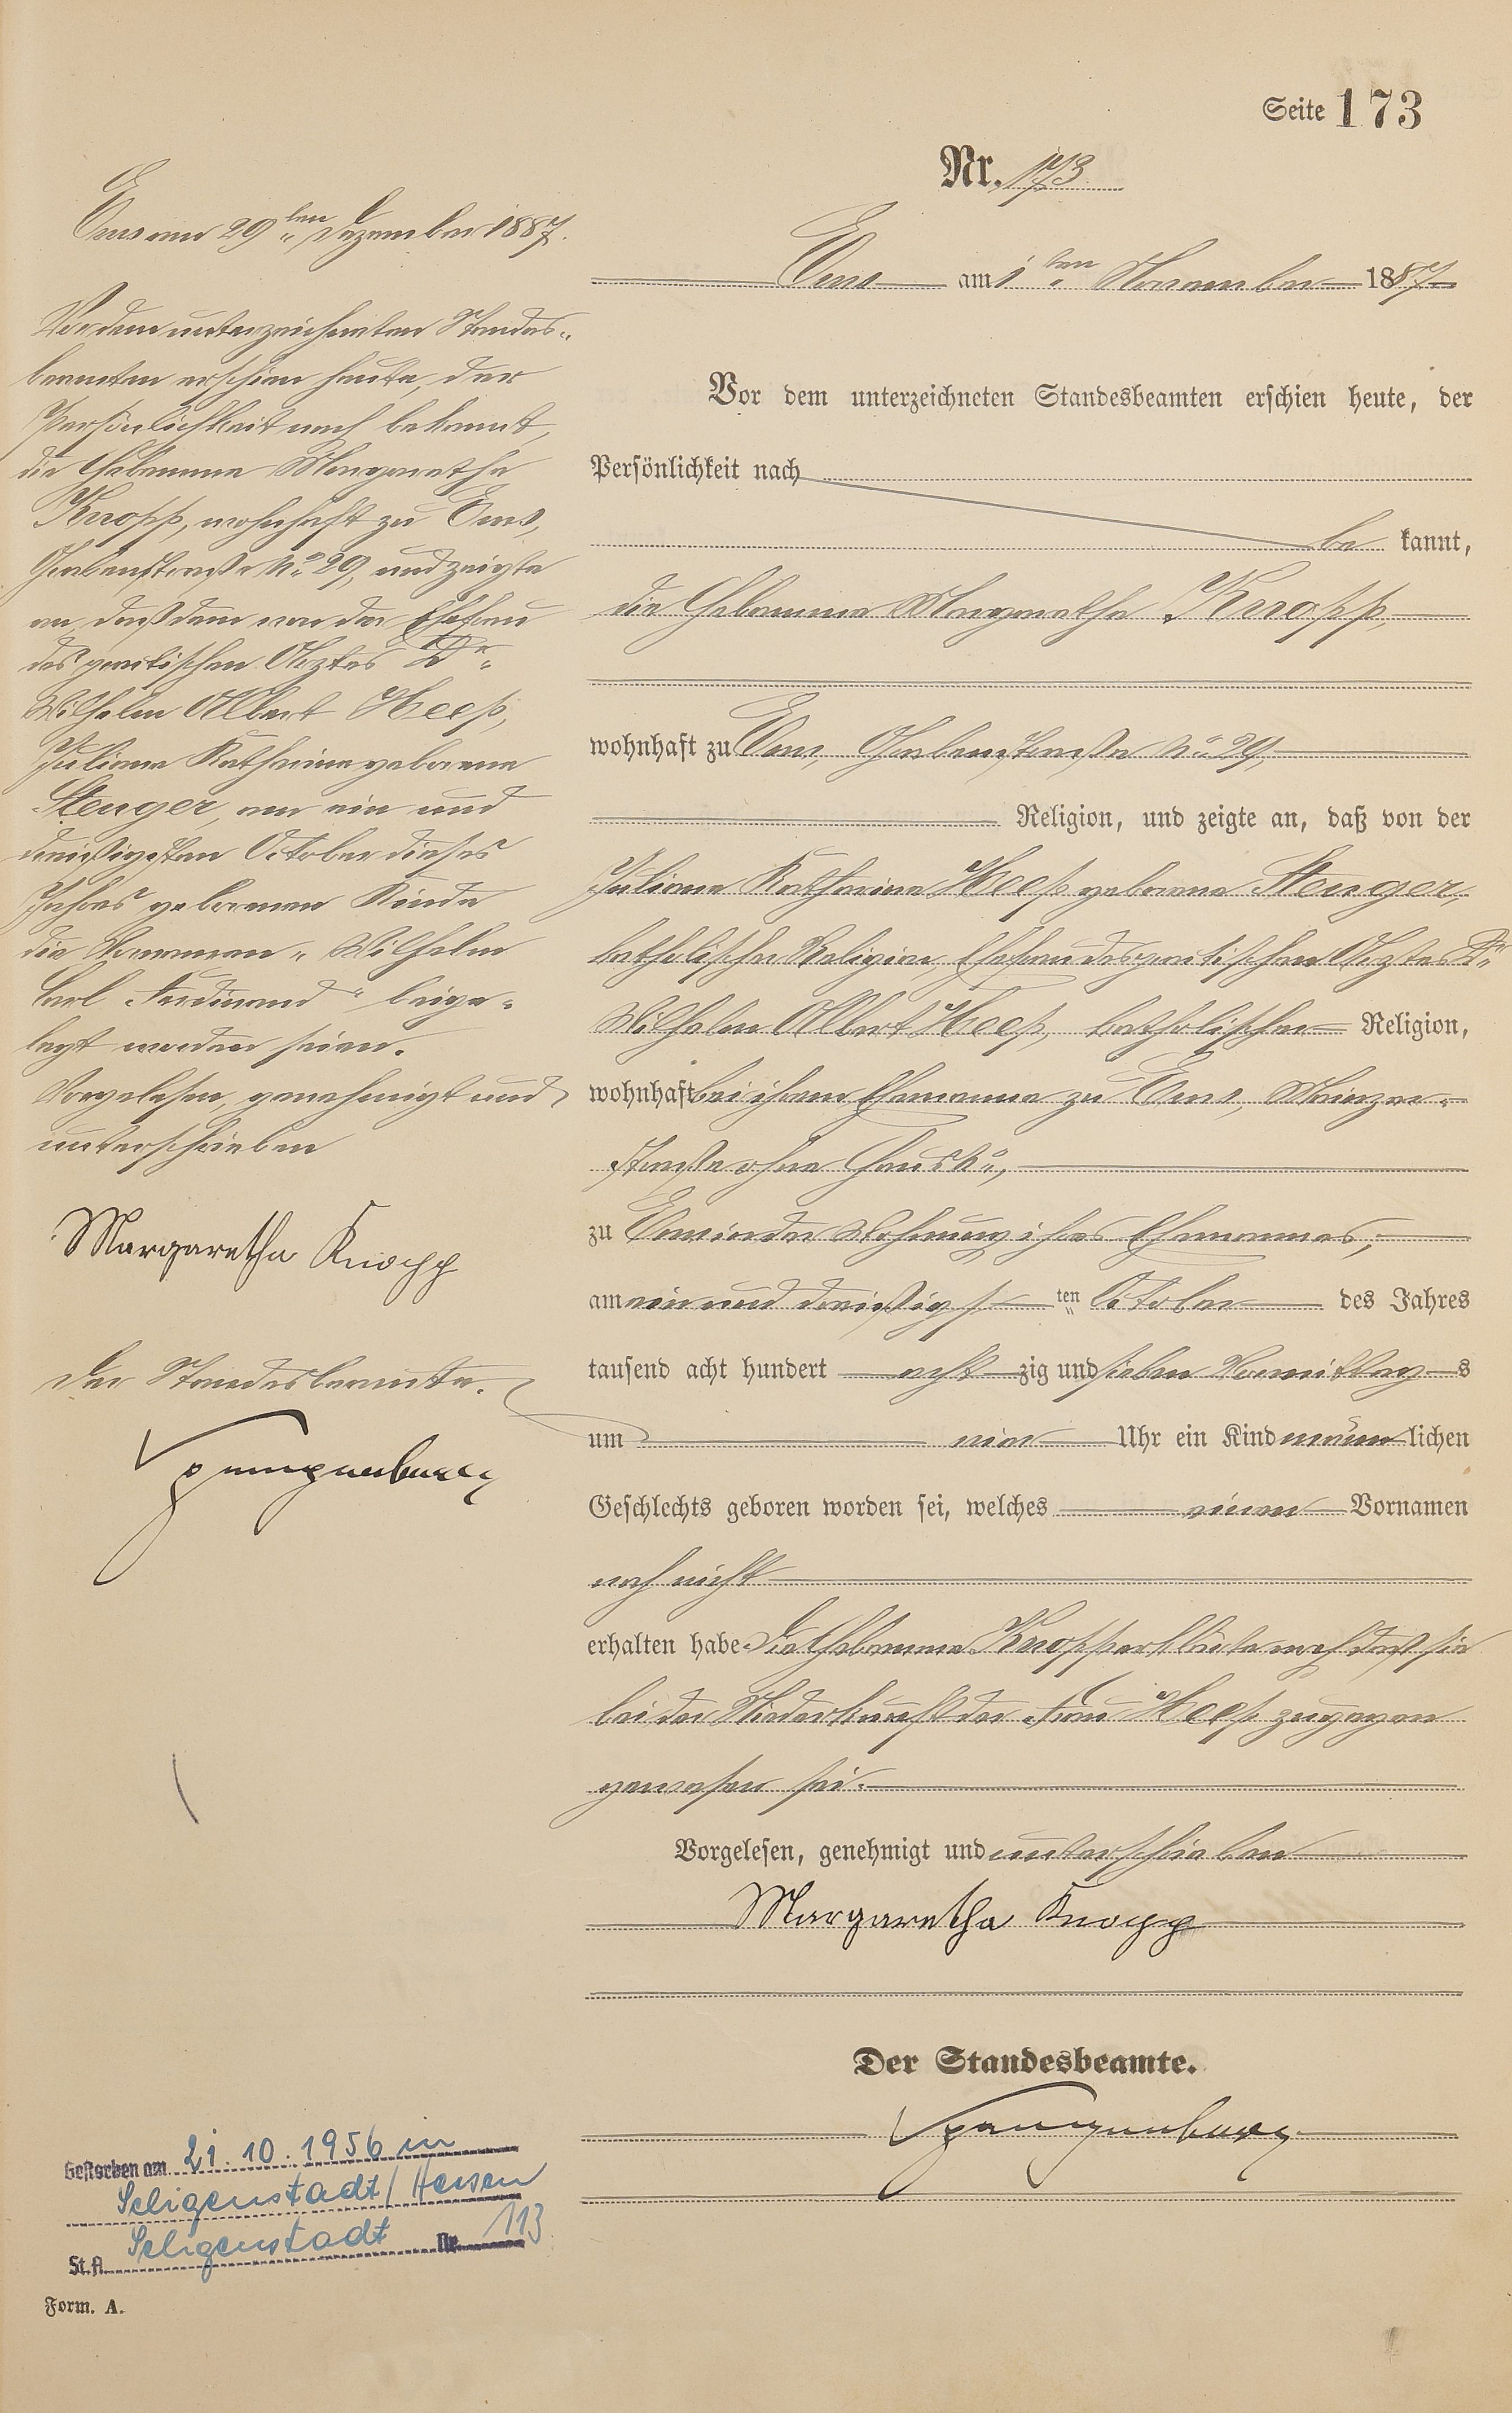 Seite 173
Nr. 173
Ems am 1ten November 1887
Vor dem unterzeichneten Standesbeamten erschien heute, der
Persönlichkeit nach
be kannt,
die Hebamme Margaretha Knopp,
wohnhaft zu Ems, Grabenstraße No 29,
Religion, und zeigte an, daß von der
Juliane Katharine Heeß geborene Stenger,
katholischer Religion, Ehefrau des practischen Arztes Dr.
Wilhelm Albert Heeß, katholischer Religion,
wohnhaft bei ihrem Ehemanne zu Ems, Mainzer-
straße ohne Haus No,
zu Ems in der Wohnung ihres Ehemannes,
am ein und dreißigsten October des Jahres
tausend acht hundert acht zig und sieben Vormittags
um vier Uhr ein Kind männlichen
Geschlechts geboren worden sei, welches einen Vornamen
noch nicht
erhalten habe. Die Hebamme Knopp erklärte noch daß sie
bei der Niederkunft der Frau Heeß zugegen
gewesen sei.
Vorgelesen, genehmigt und unterschrieben
Margaretha Knopp
Der Standesbeamte.
Spangenberg
Ems am 29ten Dezember 1887.
Vor dem unterzeichneten Standes-
beamten erschien heute, der
Persönlichkeit nach bekannt,
die Hebamme Margaretha
Knopp, wohnhaft zu Ems,
Grabenstraße No 29, und zeigte
an, daß dem von der Ehefrau
des practischen Arztes Dr.
Wilhelm Albert Heeß,
Juliane Katharine geborene
Stenger, am ein und
dreißigsten October dieses
Jahres geborenen Kinde
die Vornamen „Wilhelm
Carl Ferdinand" beige-
legt worden seien.
Vorgelesen, genehmigt und
unterschrieben
Margaretha Knopp
Der Standesbeamte.
Spangenberg
Gestorben am 21.10.1956 in
Seligenstadt/Hessen
St.A. Seligenstadt Nr. 113
Form. A.